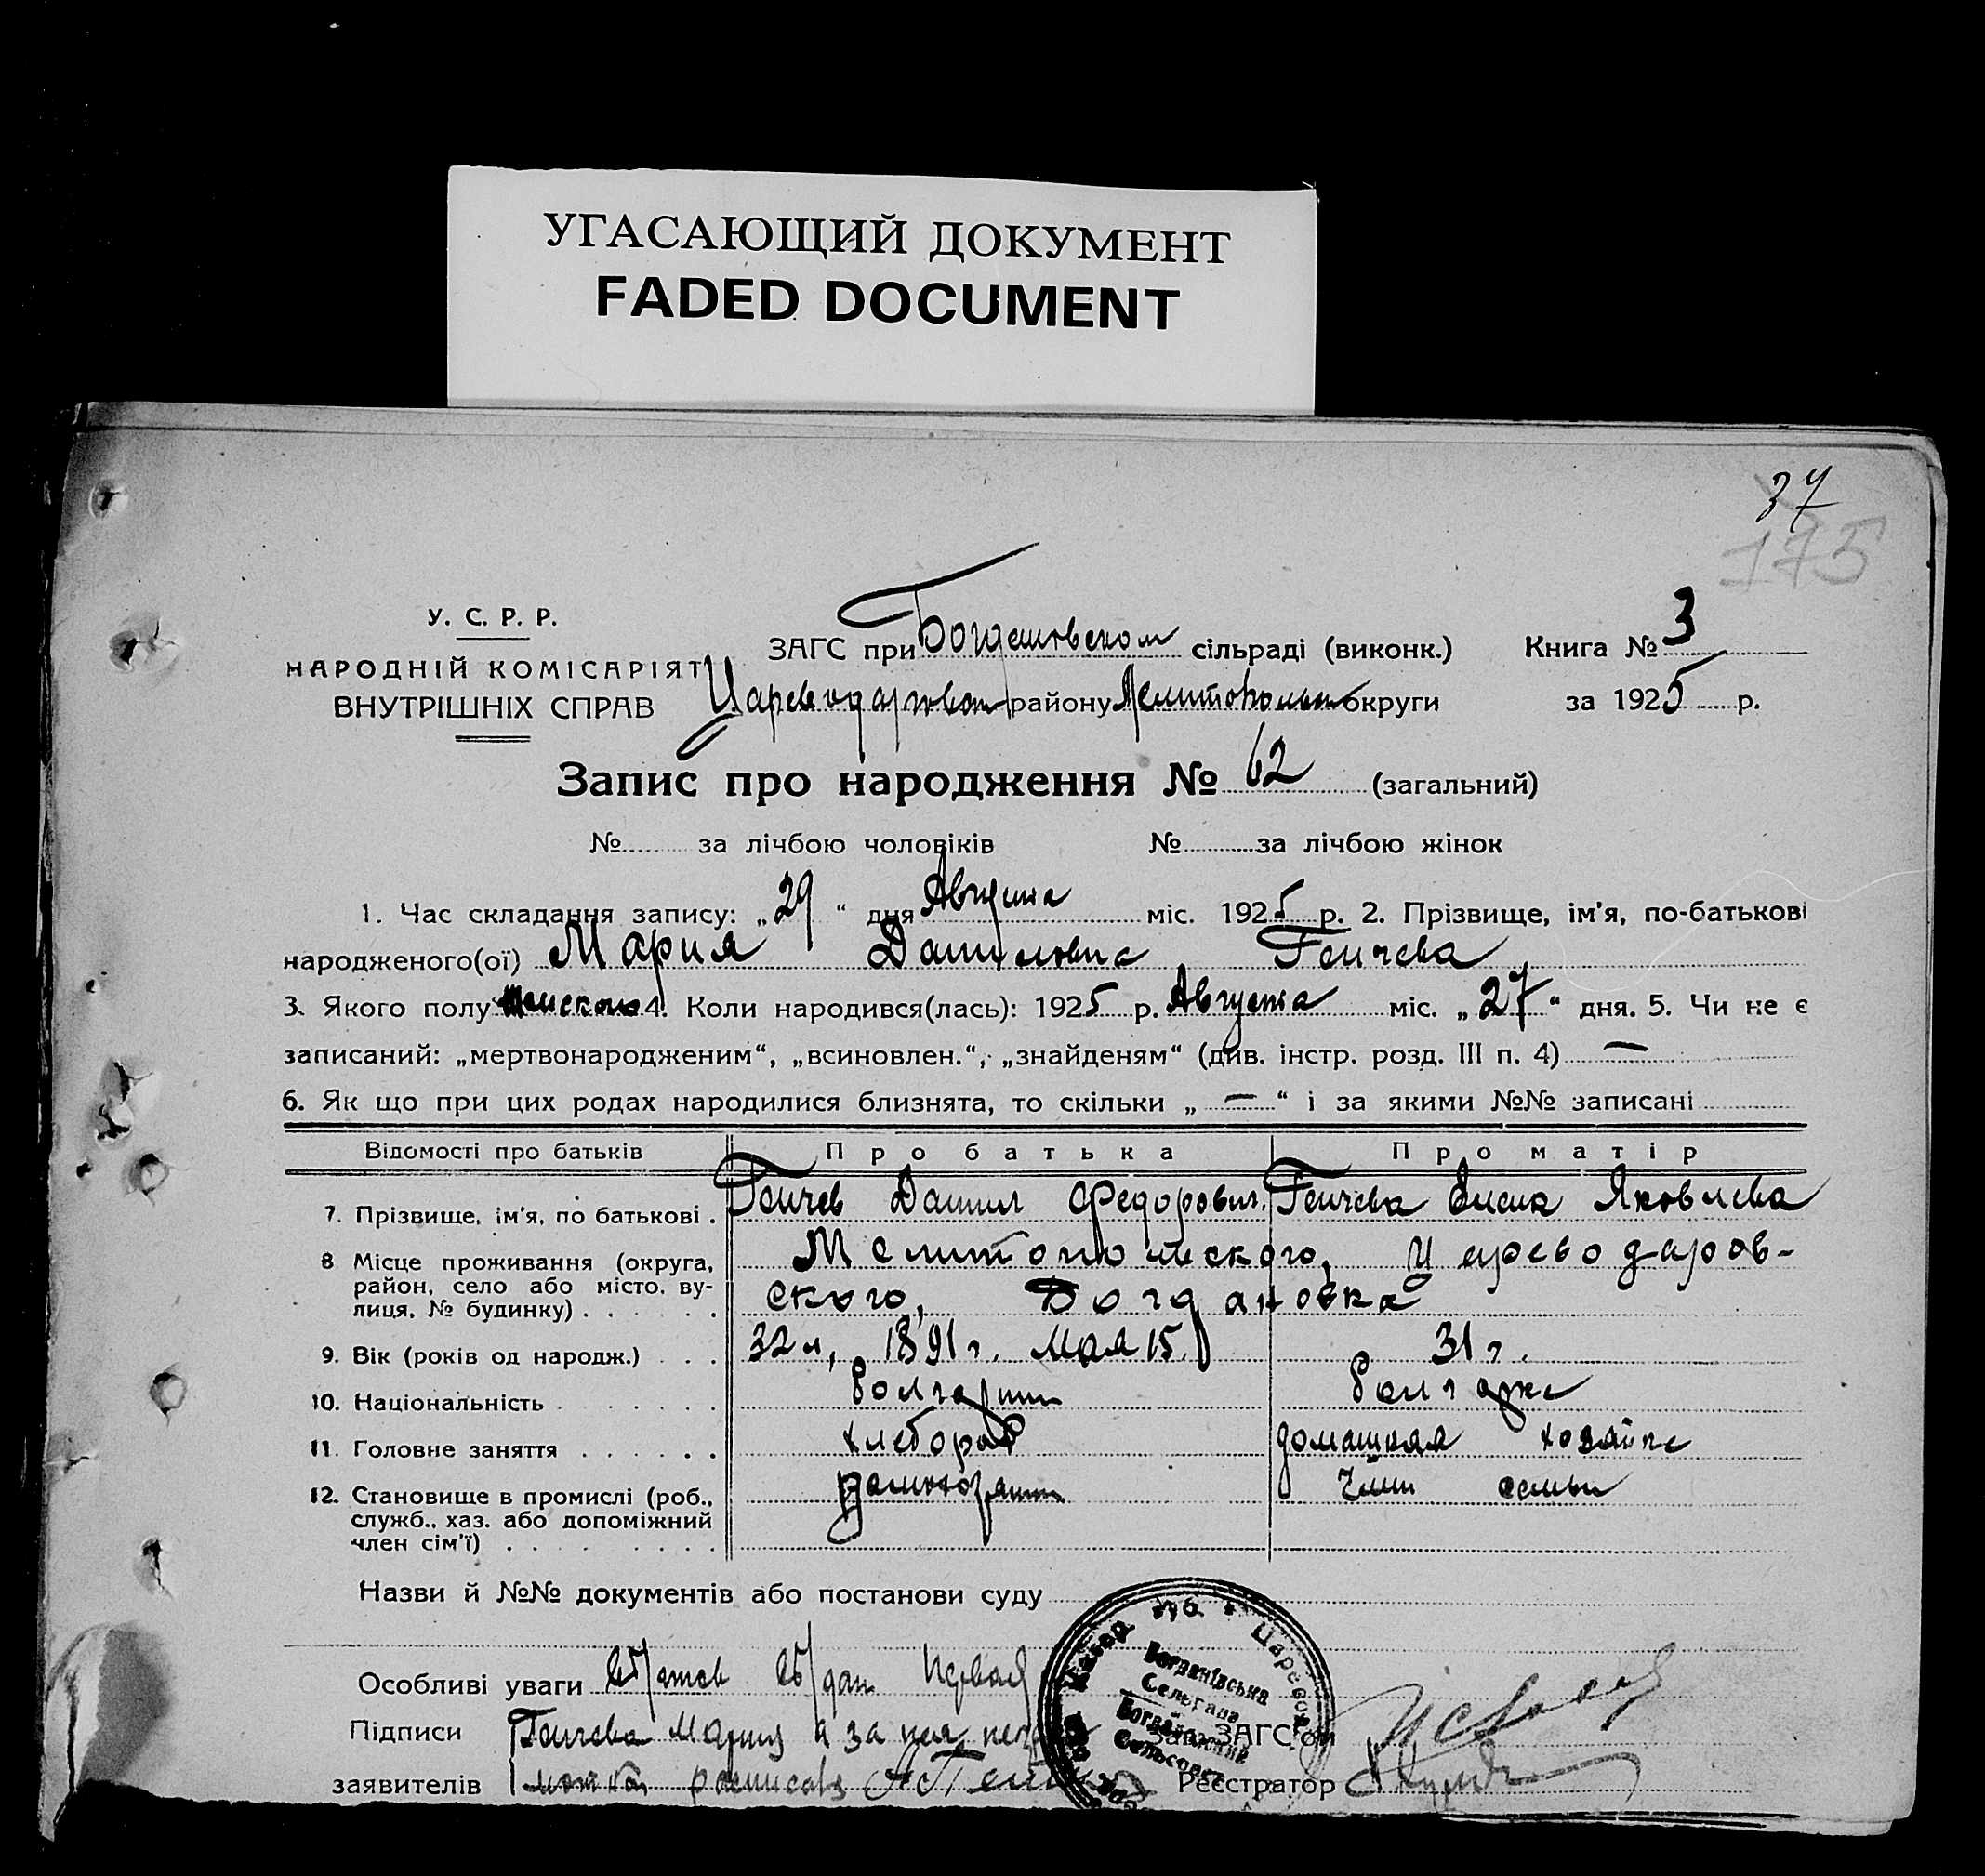 УГАСАЮЩИЙ ДОКУМЕНТ
FADED DOCUMENT
37
175
У. С. Р. Р.
НАРОДНІЙ КОМІСАРІЯТ
ВНУТРІШНІХ СПРАВ
ЗАГС при Богдановском сільраді (виконк.) Книга № 3
району округи за 1925 р.
Запис про народження № 62 (загальний)
№ за лічбою чоловіків № за лічбою жінок
1. Час складання запису: „29“ дня Августа міс. 1925 р. 2. Прізвище, ім'я, по-батькові
народженого(ої) Мария Даниловна Генчева
3. Якого полу женского 4. Коли народився(лась): 1925 р. Августа міс. „27“ дня. 5. Чи не є
записаний: „мертвонародженим“, „всиновлен.“, „знайденям“ (див. інстр. розд. III п. 4) —
6. Як що при цих родах народилися близнята, то скільки „—“ і за якими №№ записані
Відомості про батьків Про батька Про матір
7. Прізвище, ім'я, по батькові . Генчев Данил Федорович Генчева Елена Яковлева
8 Місце проживання (округа, Мелитопольского, Цареводаров-
район, село або місто, ву-
лиця, № будинку) . . . . . . ского, Богдановка
9. Вік (років од народж.) . . . 32 л, 1891 г. Мая 15. 31 г.
10. Національність . . . . . . . болгарин болгарка
11. Головне заняття . . . . . . хлебороб домашняя хозяйка
12. Становище в промислі (роб., член семьи
служб., хаз. або допоміжний
член сім'ї) . . . . . . . . .
Назви й №№ документів або постанови суду
Особливі уваги первая
Підписи Генчева Мария а за нея
Зав. ЗАГС'ом
заявителів
Реєстратор
Богданівська
Сельрада
Богдановский
Сельсовет